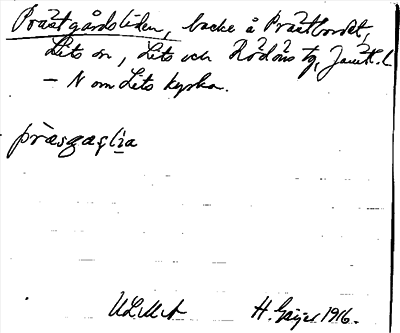 Prästgårdsliden, backe å Prästbordet,
Lits sn, Lits och Rödöns tg, Jämtl. l.
– N om Lits kyrka.
præsgaḷia
H. Geijer 1916.